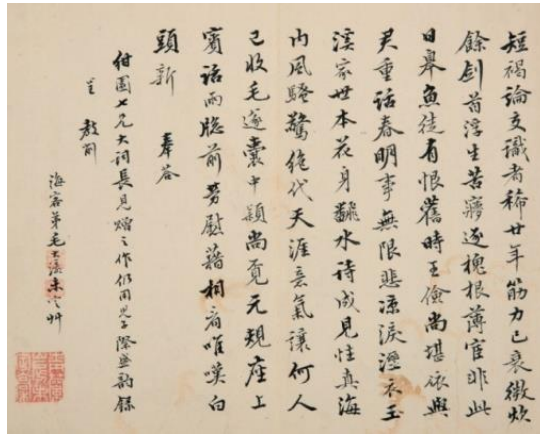 短褐論文識者稀廿年筋力已衰微炊
餘劍首浮生苦夢逐槐根薄宦非此
日皋魚徒有恨舊時王儉尚堪依與
君重話春明事無限悲涼淚溼衣玉
溪家世本花身翻水詩成見性真海
內風騷驚絕代天涯意氣讓何人
已收毛遂囊中穎尚覓元規座上
賓話雨牎前勞慰藉相看唯嘆白
頭新 奉答
園七兄大詞長見贈之作仍用兒子際韻錄
呈 教削
海客弟毛士未定艸